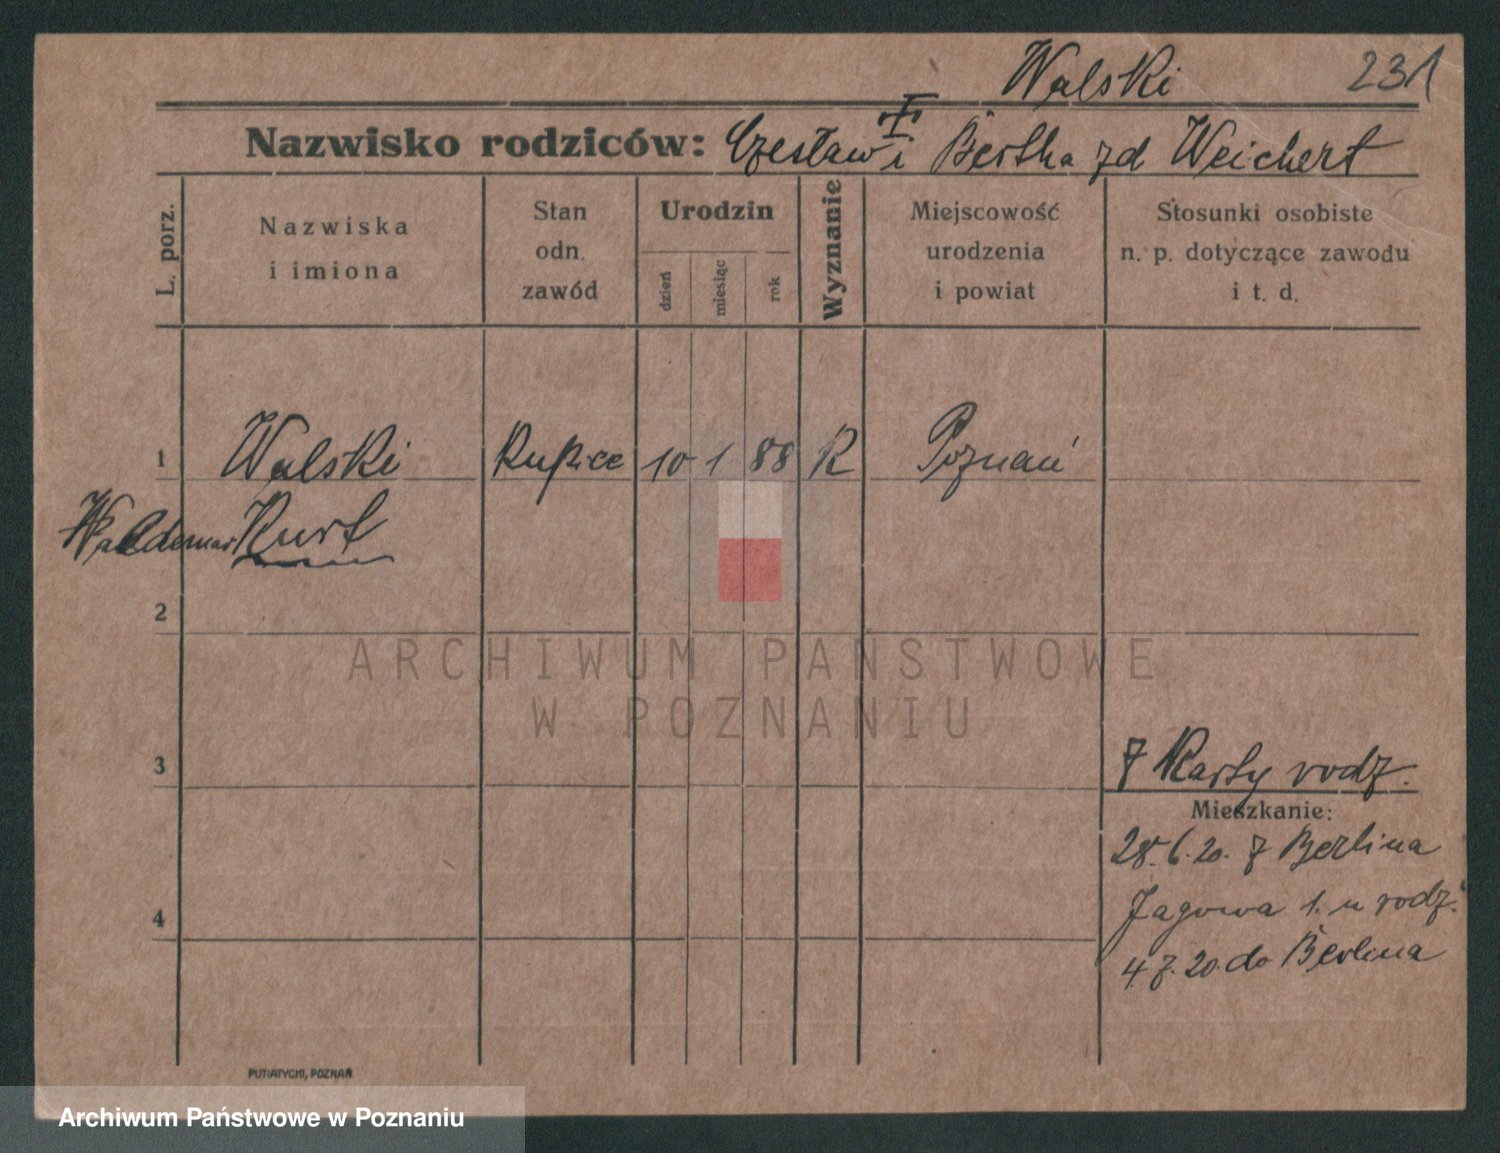 Walski 231
Nazwisko rodziców: Czesław i Bertha zd Weichert
L. porz.
Nazwiska
i imiona
Stan
odn.
zawód
Urodzin
dzień
miesiąc
rok
Wyznanie
Miejscowość
urodzenia
i powiat
Stosunki osobiste
n. p. dotyczące zawodu
i t. d.
1 Walski 10 1 88 R Poznań
Waldemar Kurt
2
ARCHIWUM PAŃSTWOWE
W POZNANIU
3
z Karty rodz.
Mieszkanie:
28.6.20. z Berlina
Jagowa 1. u rodz.
4
4.7.20. do Berlina
PUTIATYCKI, POZNAŃ
Archiwum Państwowe w Poznaniu